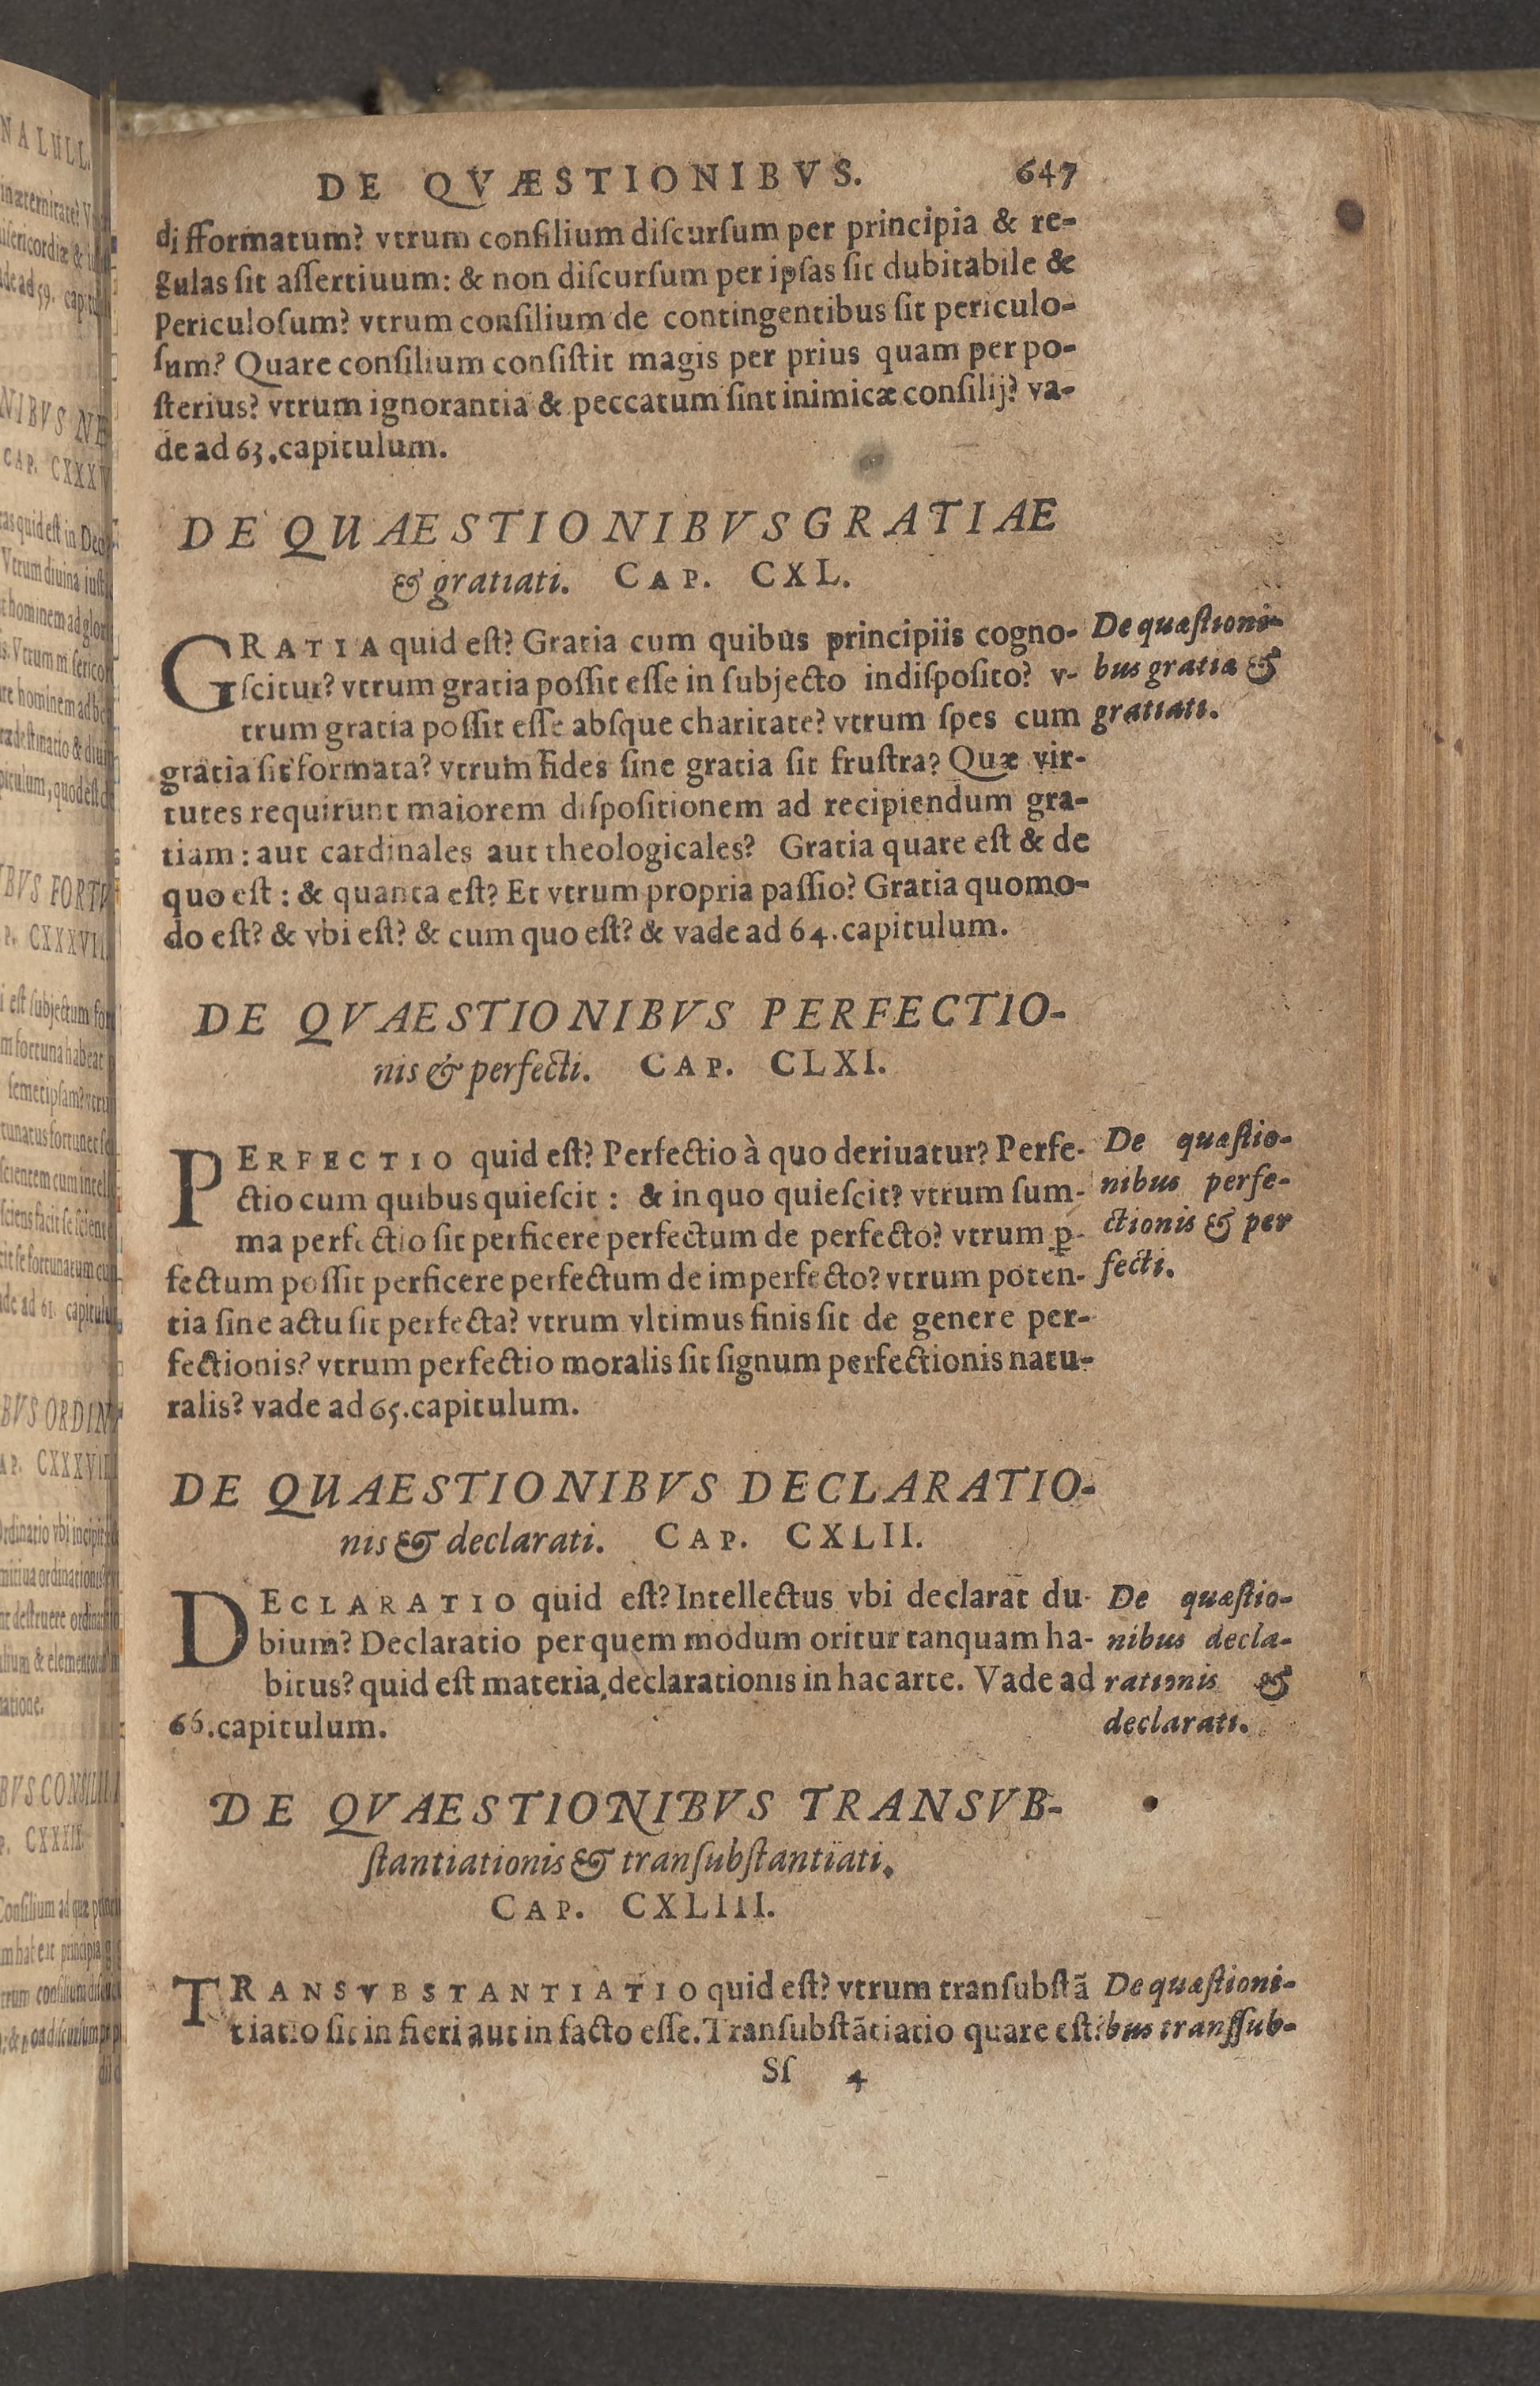 DE QVÆSTIONIBVS. 647
difformatum? vtrum conſilium diſcurſum per principia & re-
gulas ſit aſſertiuum: & non diſcurſum per ipſas ſit dubitabile &
Periculoſum? vtrum conſilium de contingentibus ſit periculo-
ſum? Quare conſilium conſiſtit magis per prius quam per po-
ſterius? vtrum ignorantia & peccatum ſint inimicæ conſilij? va-
de ad 63. capitulum.
DE QUAESTIONIBVS GRATIAE
& gratiati. CAP. CXL.
GRATIA quid eſt? Gratia cum quibus principiis cogno-
ſcitur? vtrum gratia poſſit eſſe in ſubjecto indiſpoſito? v-
trum gratia poſſit eſſe abſque charitate? vtrum ſpes cum
gratia ſit formata? vtrum fides ſine gratia ſit fruſtra? Quæ vir-
tutes requirunt maiorem diſpoſitionem ad recipiendum gra-
tiam: aut cardinales aut theologicales? Gratia quare eſt & de
quo eſt: & quanta eſt? Et vtrum propria paſſio? Gratia quomo-
do eſt? & vbi eſt? & cum quo eſt? & vade ad 64. capitulum.
De quæſtioni-
bus gratiæ &
gratiati.
DE QVAESTIONIBVS PERFECTIO-
nis & perfecti. CAP. CLXI.
PERFECTIO quid eſt? Perfectio à quo deriuatur? Perfe-
ctio cum quibus quieſcit: & in quo quieſcit? vtrum ſum-
ma perfectio ſit perficere perfectum de perfecto? vtrum ꝑ-
fectum poſſit perficere perfectum de imperfecto? vtrum poten-
tia ſine actu ſit perfecta? vtrum vltimus finis ſit de genere per-
fectionis? vtrum perfectio moralis ſit ſignum perfectionis natu-
ralis? vade ad 65. capitulum.
De quæſtio-
nibus perfe-
ctionis & per
fecti.
DE QUAESTIONIBVS DECLARATIO-
nis & declarati. CAP. CXLII.
DECLARATIO quid eſt? Intellectus vbi declarat du-
bium? Declaratio per quem modum oritur tanquam ha-
bitus? quid eſt materia, declarationis in hac arte. Vade ad
66. capitulum.
De quæſtio-
nibus decla-
rationis &
declarati.
DE QVAESTIONIBVS TRANSVB-
ſtantiationis & tranſubſtantiati.
CAP. CXLIII.
TRANSVBSTANTIATIO quid eſt? vtrum tranſubſtã
tiatio ſit in fieri aut in facto eſſe. Tranſubſtãtiatio quare eſt?
De quæſtioni-
bus tranſſub-
Sſ 4